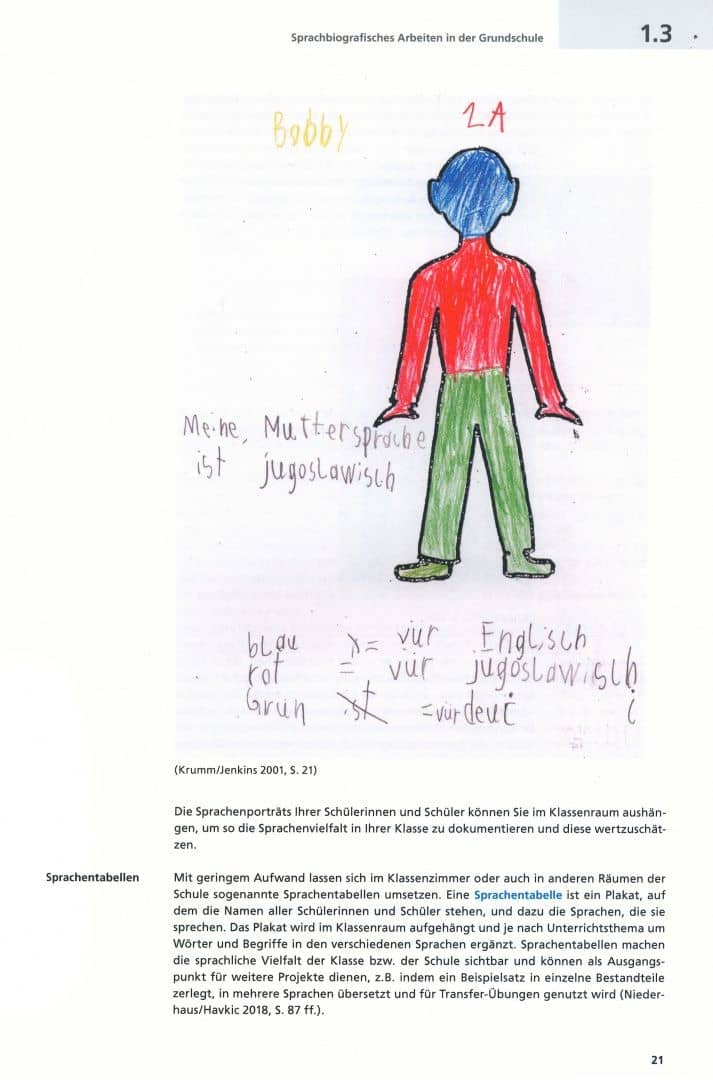 Sprachbiografisches Arbeiten in der Grundschule
1.3
Bobby
2A
Meine, Muttersprache
ist jugoslawisch
blau = vür Englisch
rot = vür jugoslawisch
Grün ist =vür deuc
(Krumm/Jenkins 2001, S. 21)
Die Sprachenporträts Ihrer Schülerinnen und Schüler können Sie im Klassenraum aushän-
gen, um so die Sprachenvielfalt in Ihrer Klasse zu dokumentieren und diese wertzuschät-
zen.
Sprachentabellen
Mit geringem Aufwand lassen sich im Klassenzimmer oder auch in anderen Räumen der
Schule sogenannte Sprachentabellen umsetzen. Eine Sprachentabelle ist ein Plakat, auf
dem die Namen aller Schülerinnen und Schüler stehen, und dazu die Sprachen, die sie
sprechen. Das Plakat wird im Klassenraum aufgehängt und je nach Unterrichtsthema um
Wörter und Begriffe in den verschiedenen Sprachen ergänzt. Sprachentabellen machen
die sprachliche Vielfalt der Klasse bzw. der Schule sichtbar und können als Ausgangs-
punkt für weitere Projekte dienen, z.B. indem ein Beispielsatz in einzelne Bestandteile
zerlegt, in mehrere Sprachen übersetzt und für Transfer-Übungen genutzt wird (Nieder-
haus/Havkic 2018, S. 87 ff.).
21